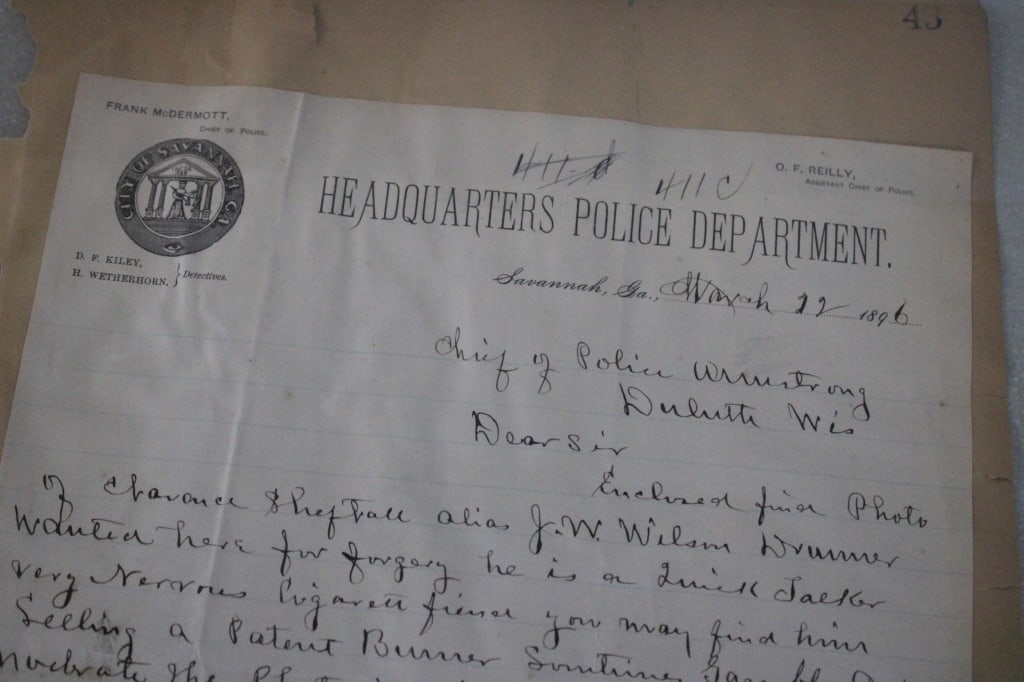 43
FRANK McDERMOTT,
CHIEF OF POLICE.
CITY OF SAVANNAH, GA.
D. F. KILEY,
H. WETHERHORN, } Detectives.
411
411 C
O. F. REILLY,
ASSISTANT CHIEF OF POLICE.
HEADQUARTERS POLICE DEPARTMENT.
Savannah, Ga., March 22 1896
Chief of Police Armstrong
Duluth Wis
Dear Sir
Enclosed find Photo
of Clarence Sheftall alias J. W. Wilson Drummer
Wanted here for forgery he is a Quick Talker
very Nervous Cigarett fiend you may find him
Selling a Patent Burner Somtimes
the